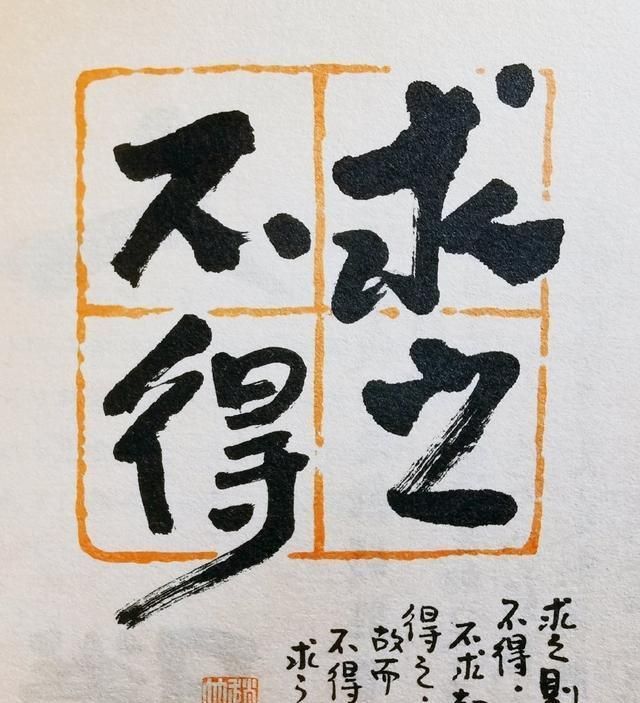 求之
不得
求之則
不得。
不求
得之。
故而
不得
求之